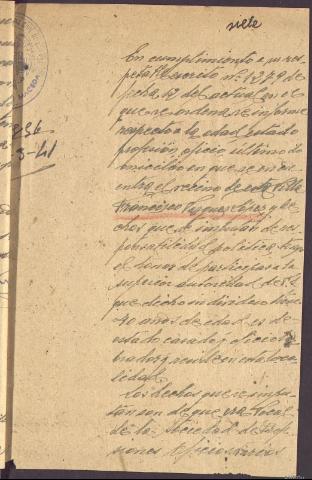 siete
En cumplimiento a su res-
petable escrito nº 1279 de
fecha 12 del actual en el
que se ordena se informe
respecto a la edad, estado
profesion, oficio ultimo do-
micilio en que se encu-
entra el vecino de esta Villa
Francisco Lopez y he-
chos que se imputan de res-
ponsabilidad politica, tengo
el honor de participar a la
superior autoridad de S.
que dicho individuo tiene
40 años de edad, es de
estado casado y oficio
y reside en esta loca-
lidad.
Los hechos que se impu-
tan son de que era Vocal
de la Sociedad de Profe-
siones y oficios varios